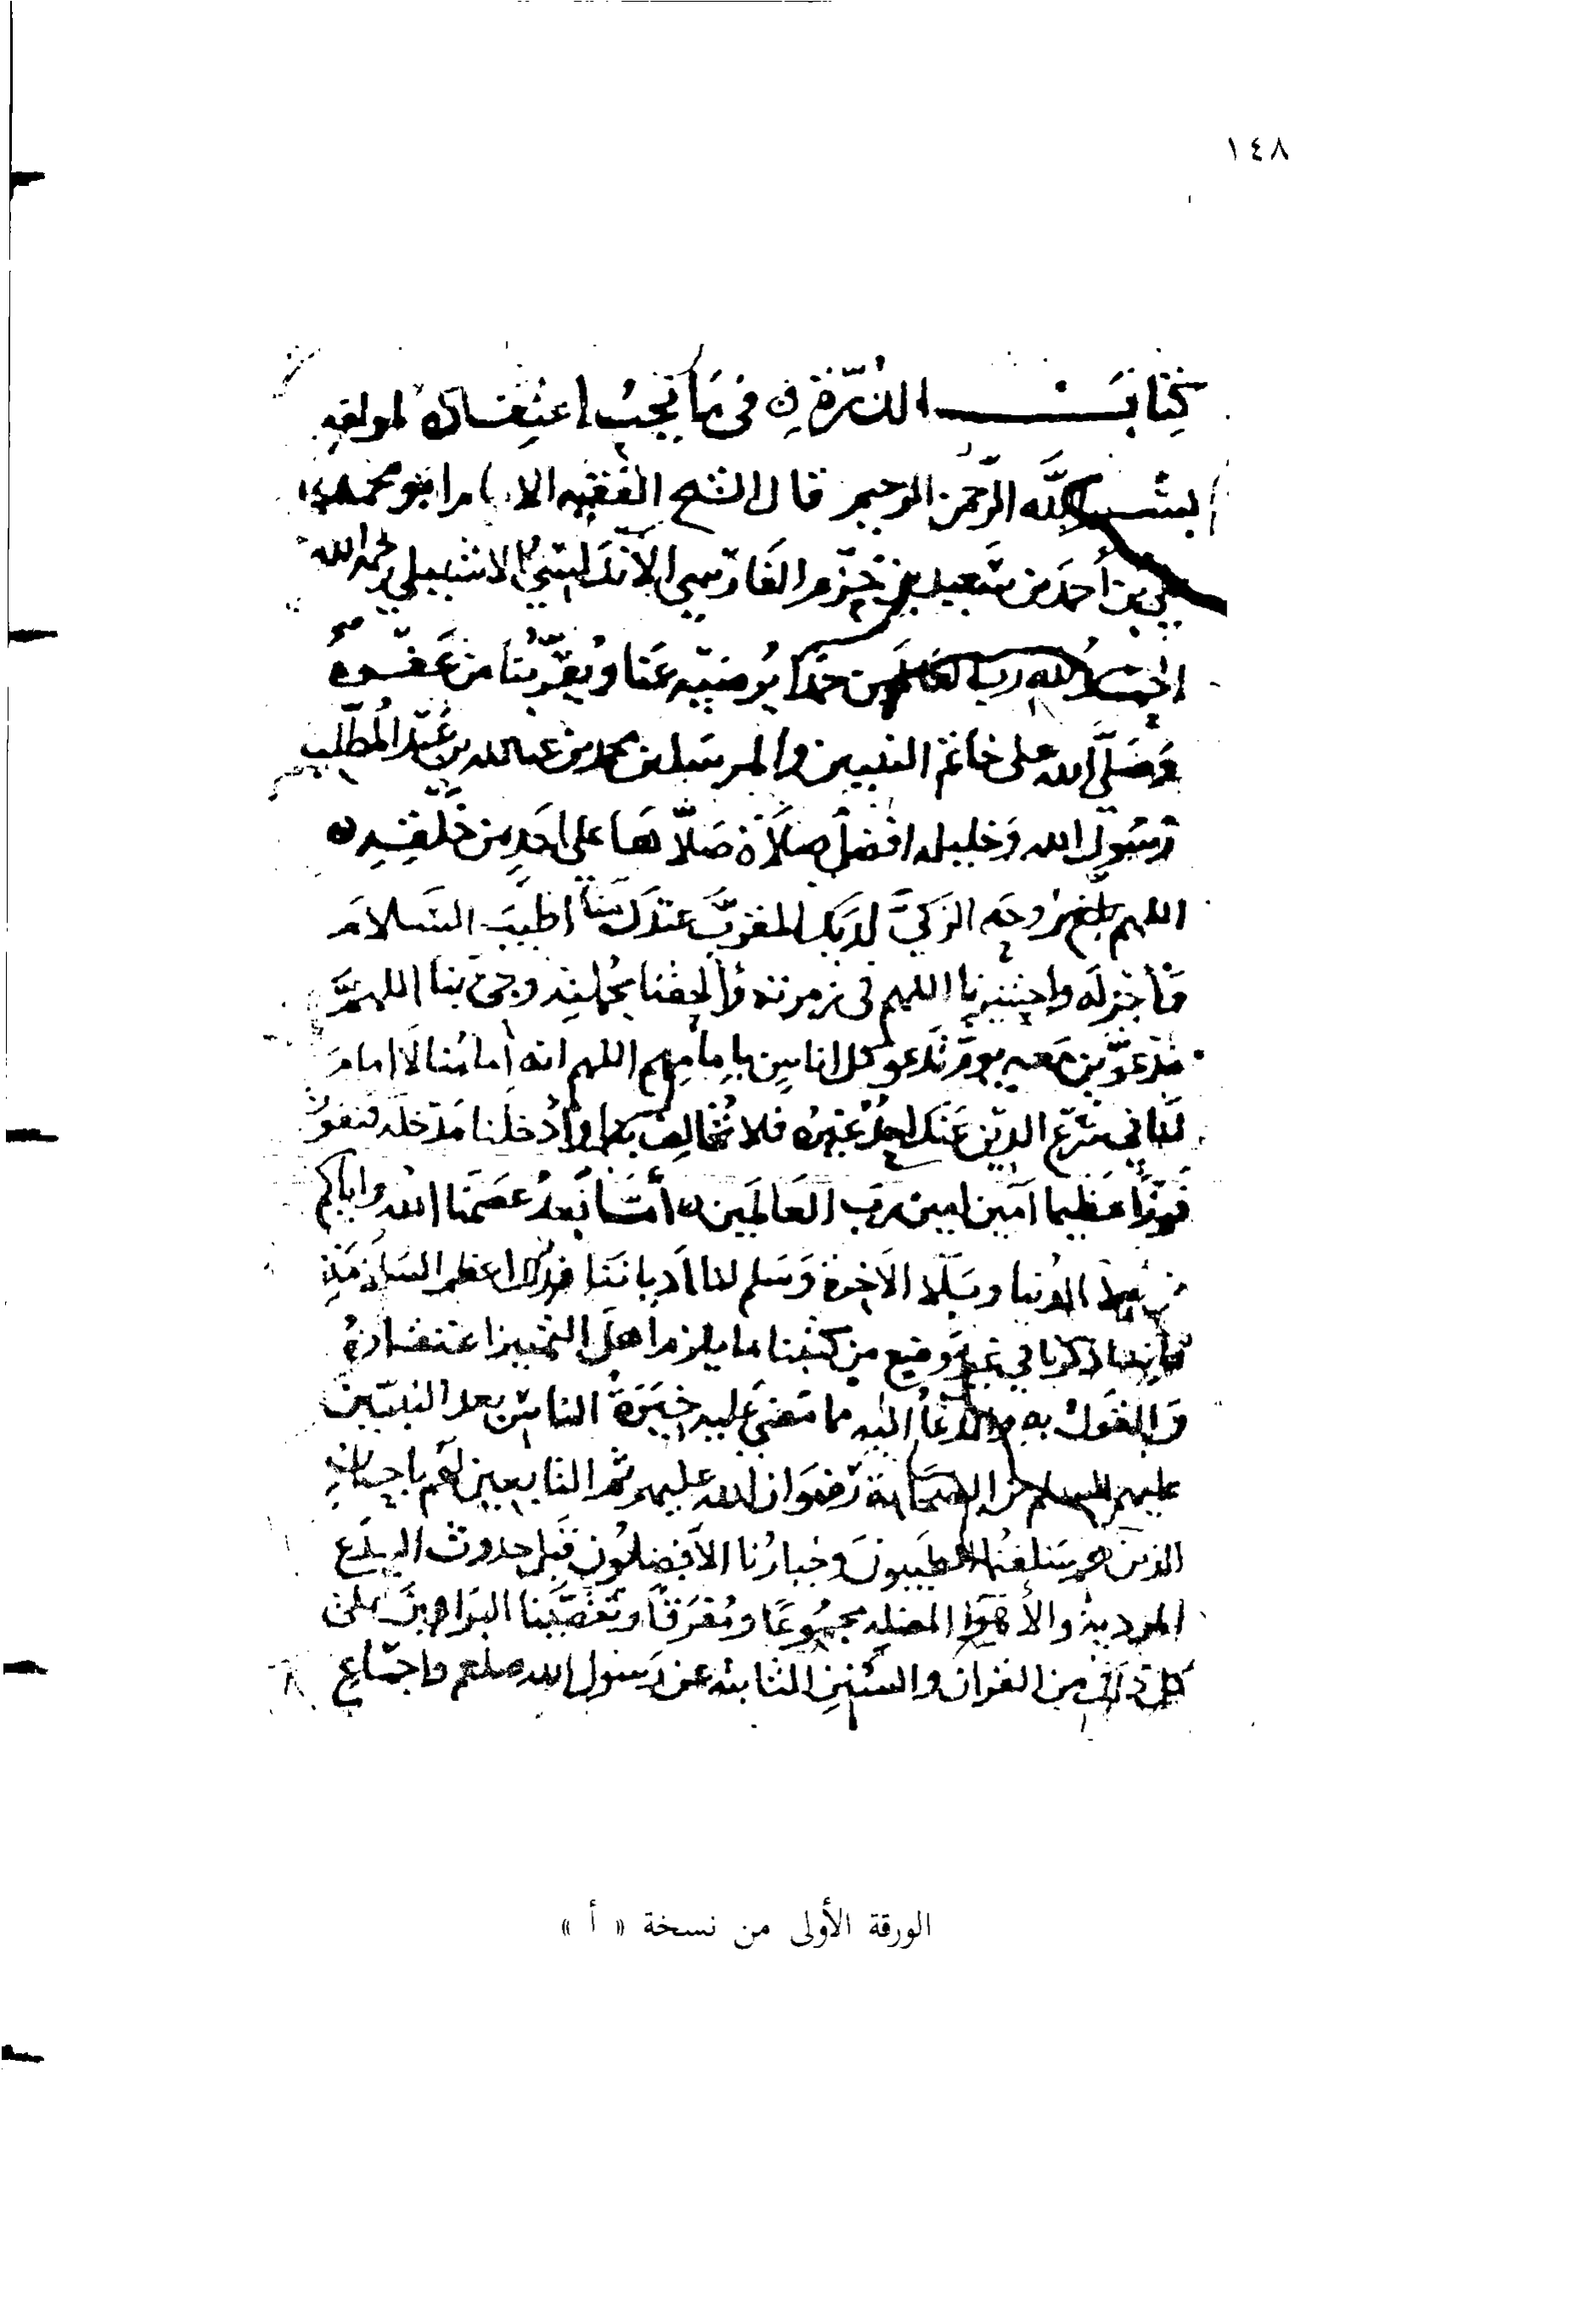 ١٤٨
كتاب الدرة في ما يجب اعتقاده لمولفه
بسم الله الرحمن الرحيم قال الشيخ الفقيه الامام ابو محمد
علي بن أحمد بن سعيد بن حزم الفارسي الاندلسي الاشبيلي رحمه الله
الحمد لله رب العالمين حمدا يرضيه عنا ويقربنا من عفوه
وصلى الله على خاتم النبيين والمرسلين محمد بن عبد الله بن عبد المطلب
رسول الله وخليله افضل صلاة صلاها على احد من خلقه
اللهم بلغ روحه الزكي لديك المقرب عندك منا اطيب السلام
وأجزله واحشرنا اللهم في زمرته وألحقنا بجملته وجئ بنا اللهم
مدعوين معه يوم تدعو كل اناس بإمامهم اللهم انه امامنا لا امام
لنا في شرع الدين عندك احد غيره فلا تخالف بنا وأدخلنا مدخله فنفوز
فوزا عظيما آمين امين رب العالمين أما بعد عصمنا الله واياكم
الدنيا وبلا الآخرة وسلم لنا أدياننا فذلك اعظم السلامة
فإننا ذكرنا في غير موضع من كتبنا ما يلزم أهل التمييز اعتقاده
والقول به والدعا إليه مما مضى عليه خيرة الناس بعد النبيين
عليهم السلام من الصحابة رضوان الله عليهم ثم التابعين لهم باحسان
الذين هم سلفنا الطيبون وخيارنا الأفضلون قبل حدوث البدع
المردية والأهوا المضله مجموعا ومفرقا وتقصينا البراهين على
كل ذلك من القران والسنن الثابته عن رسول الله صلعم واجماع
الورقة الأولى من نسخة « أ »